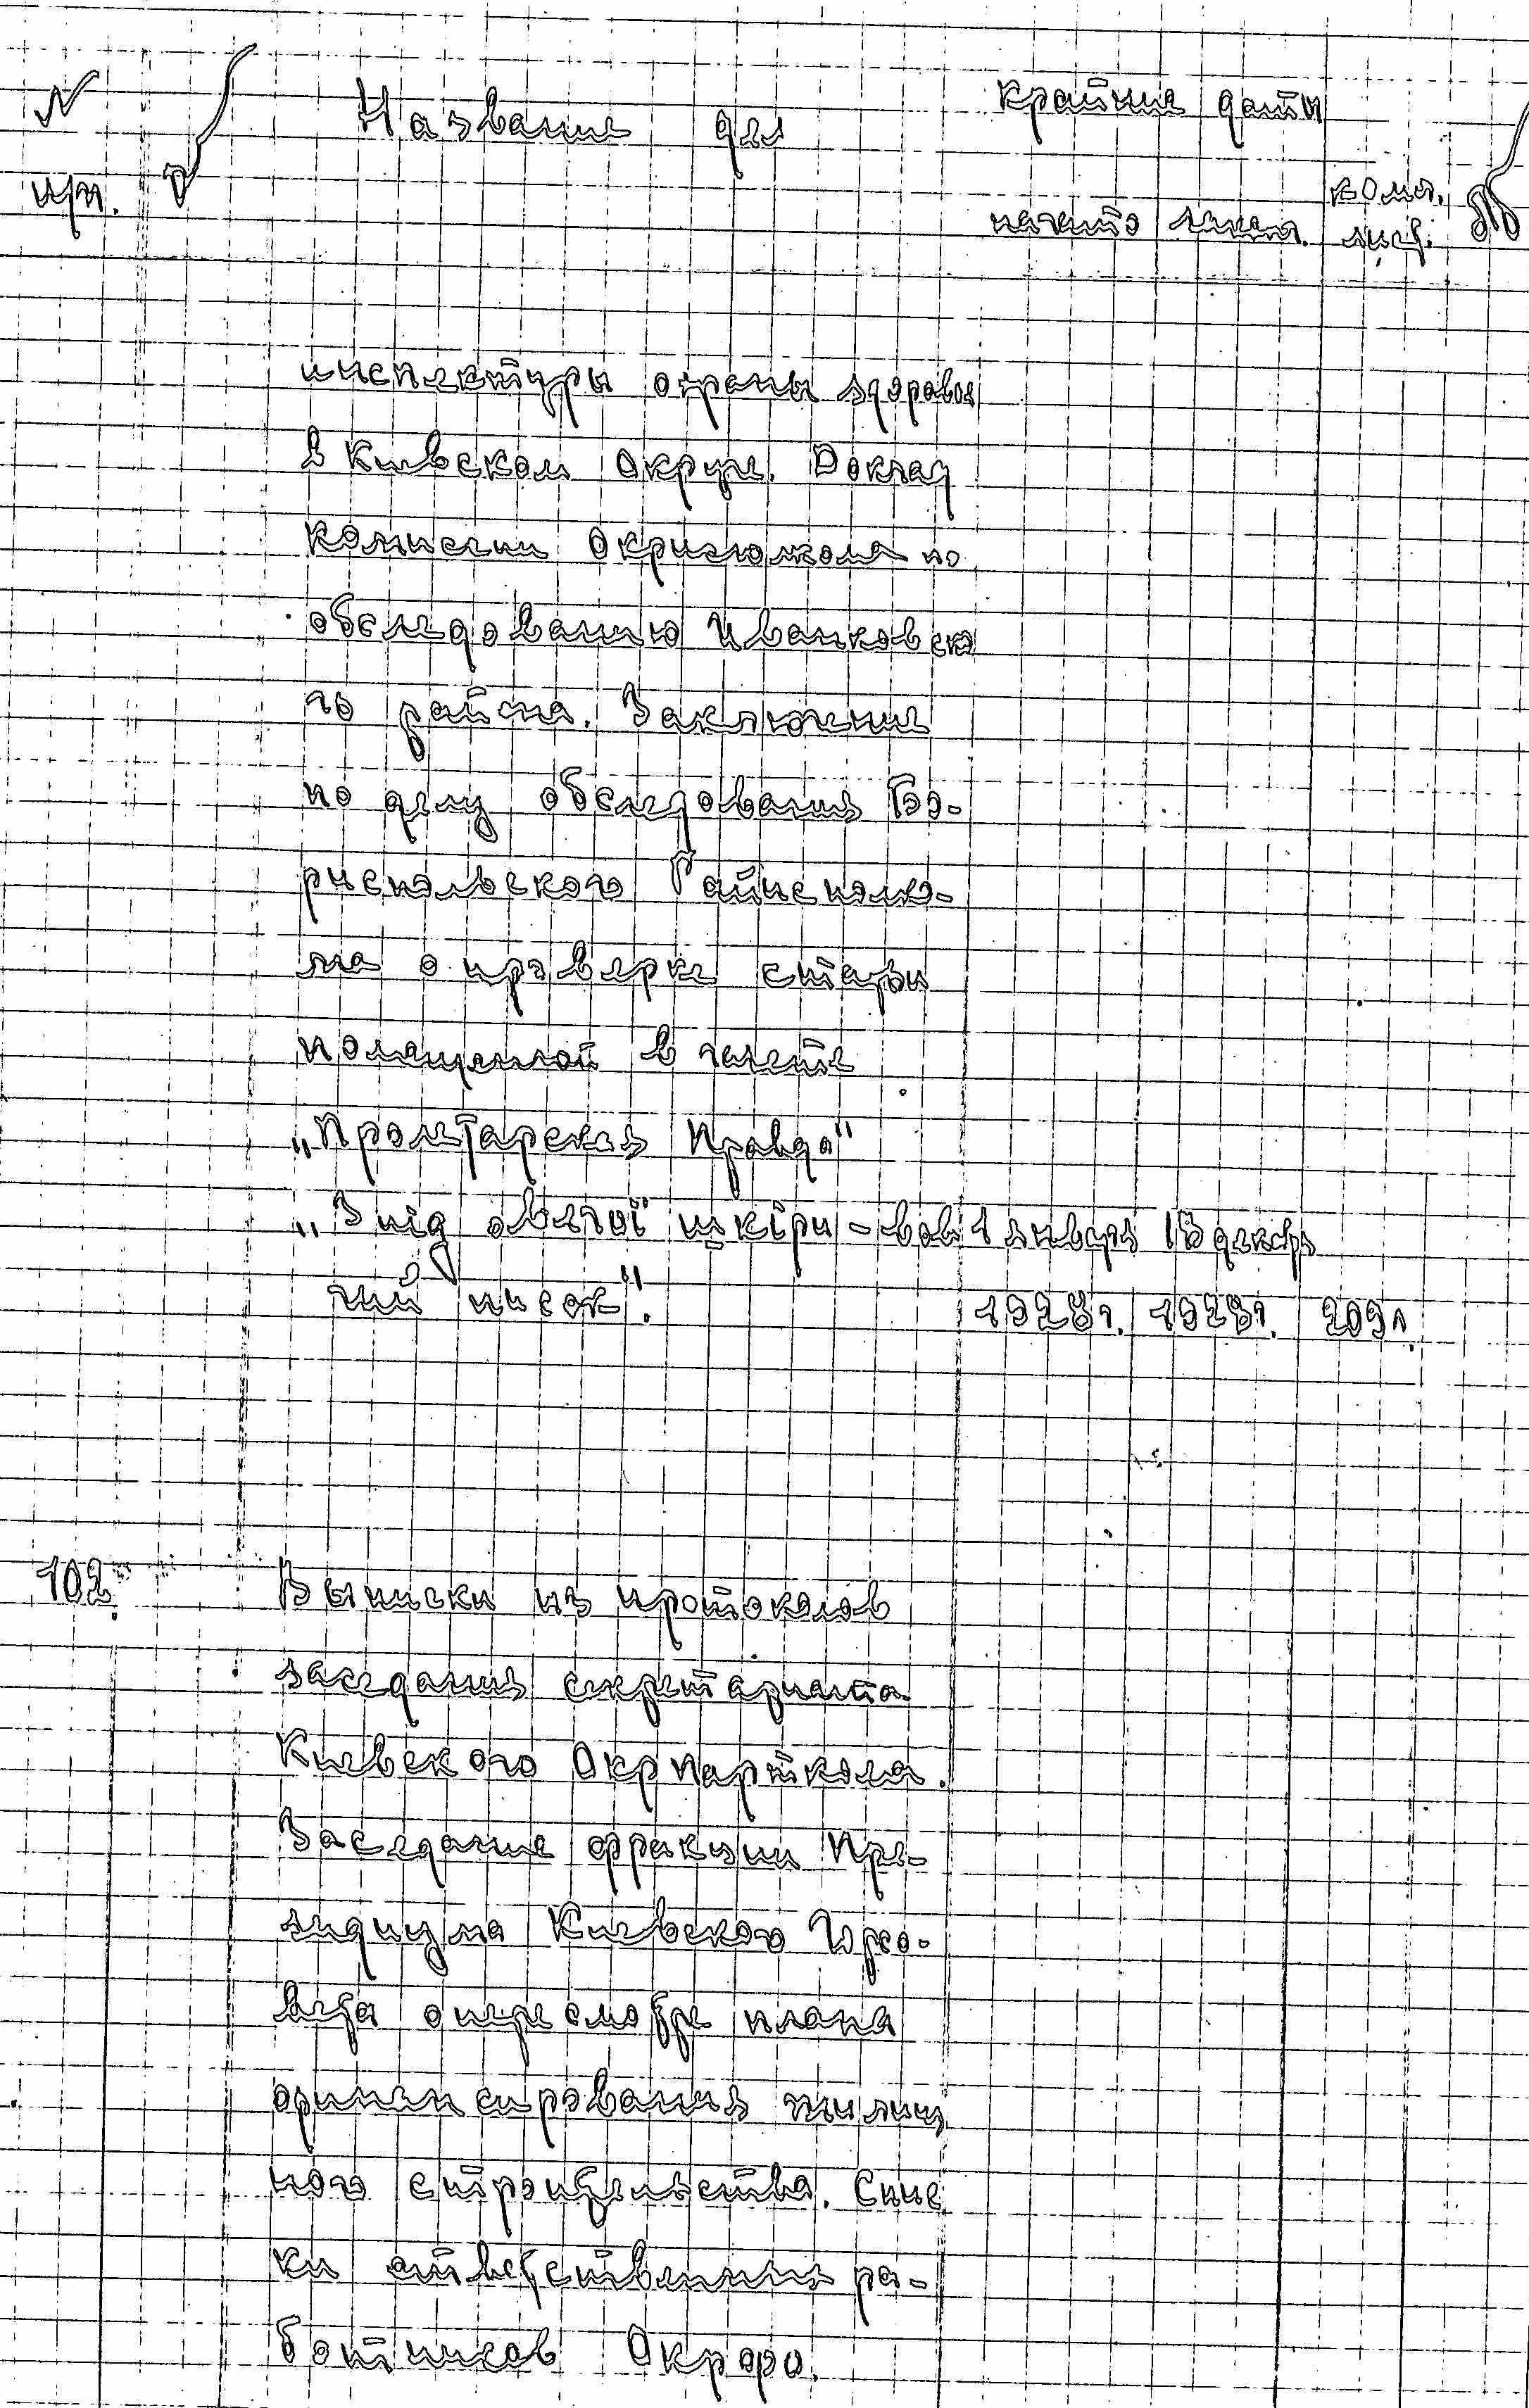 N Название дел крайние даты
п/п. начато законч. колич. лист.
инспектуры охраны здоровья
в Киевском Округе. Доклад
комиссии Окрисполкома по
обследованию Иванковско
го района. Заключение
по делу обследования Бо-
риспольского Райисполко-
ма о проверке статьи
помещенной в газете
„Пролетарская Правда"
„З під овечої шкіри - вов 1 января 13 декабря
чий писок". 1928г. 1928г. 209л
102. Выписки из протоколов
заседания секретариата
Киевского Окрпарткома.
Заседание фракции Пре-
зидиума Киевского Горсо-
вета о пересмотре плана
финансирования жилищ
ного строительства. Спис
ки ответственных ра-
ботников Окрфо.